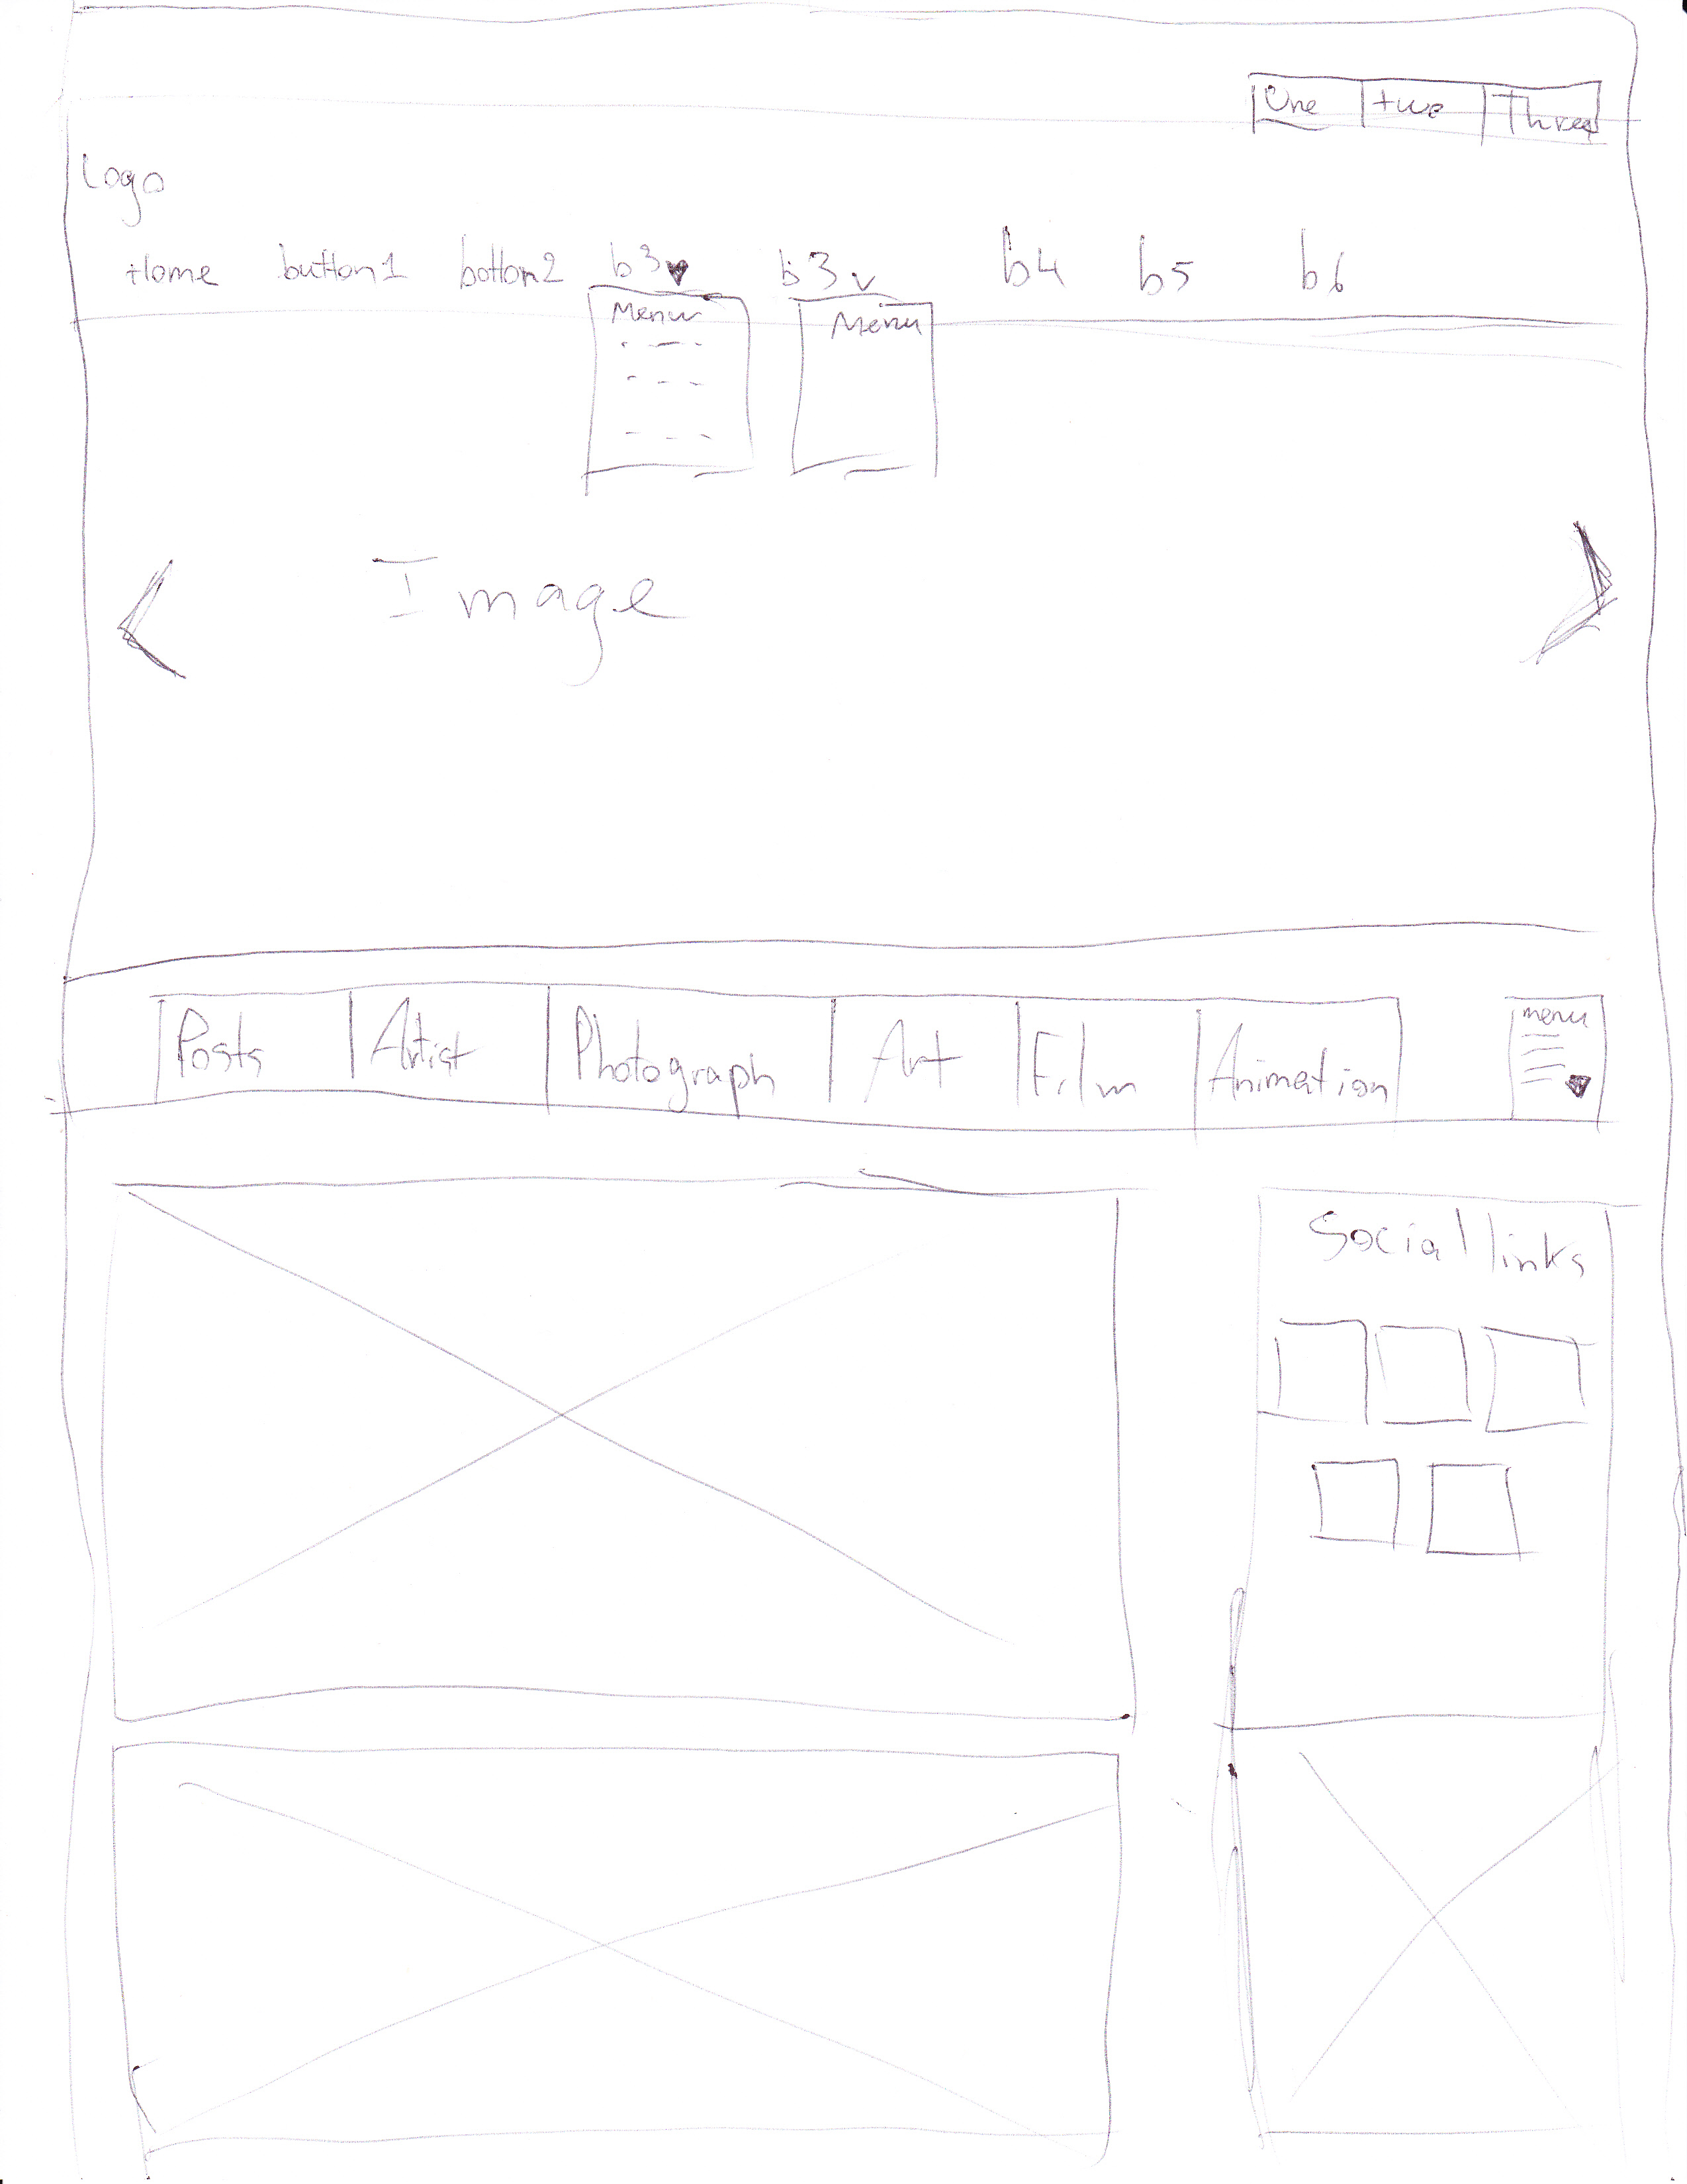 One two Three
Logo
Home button1 botton2 b3v b3v b4 b5 b6
Menu Menu
Image
Posts Artist Photograph Art Film Animation menu
Social links